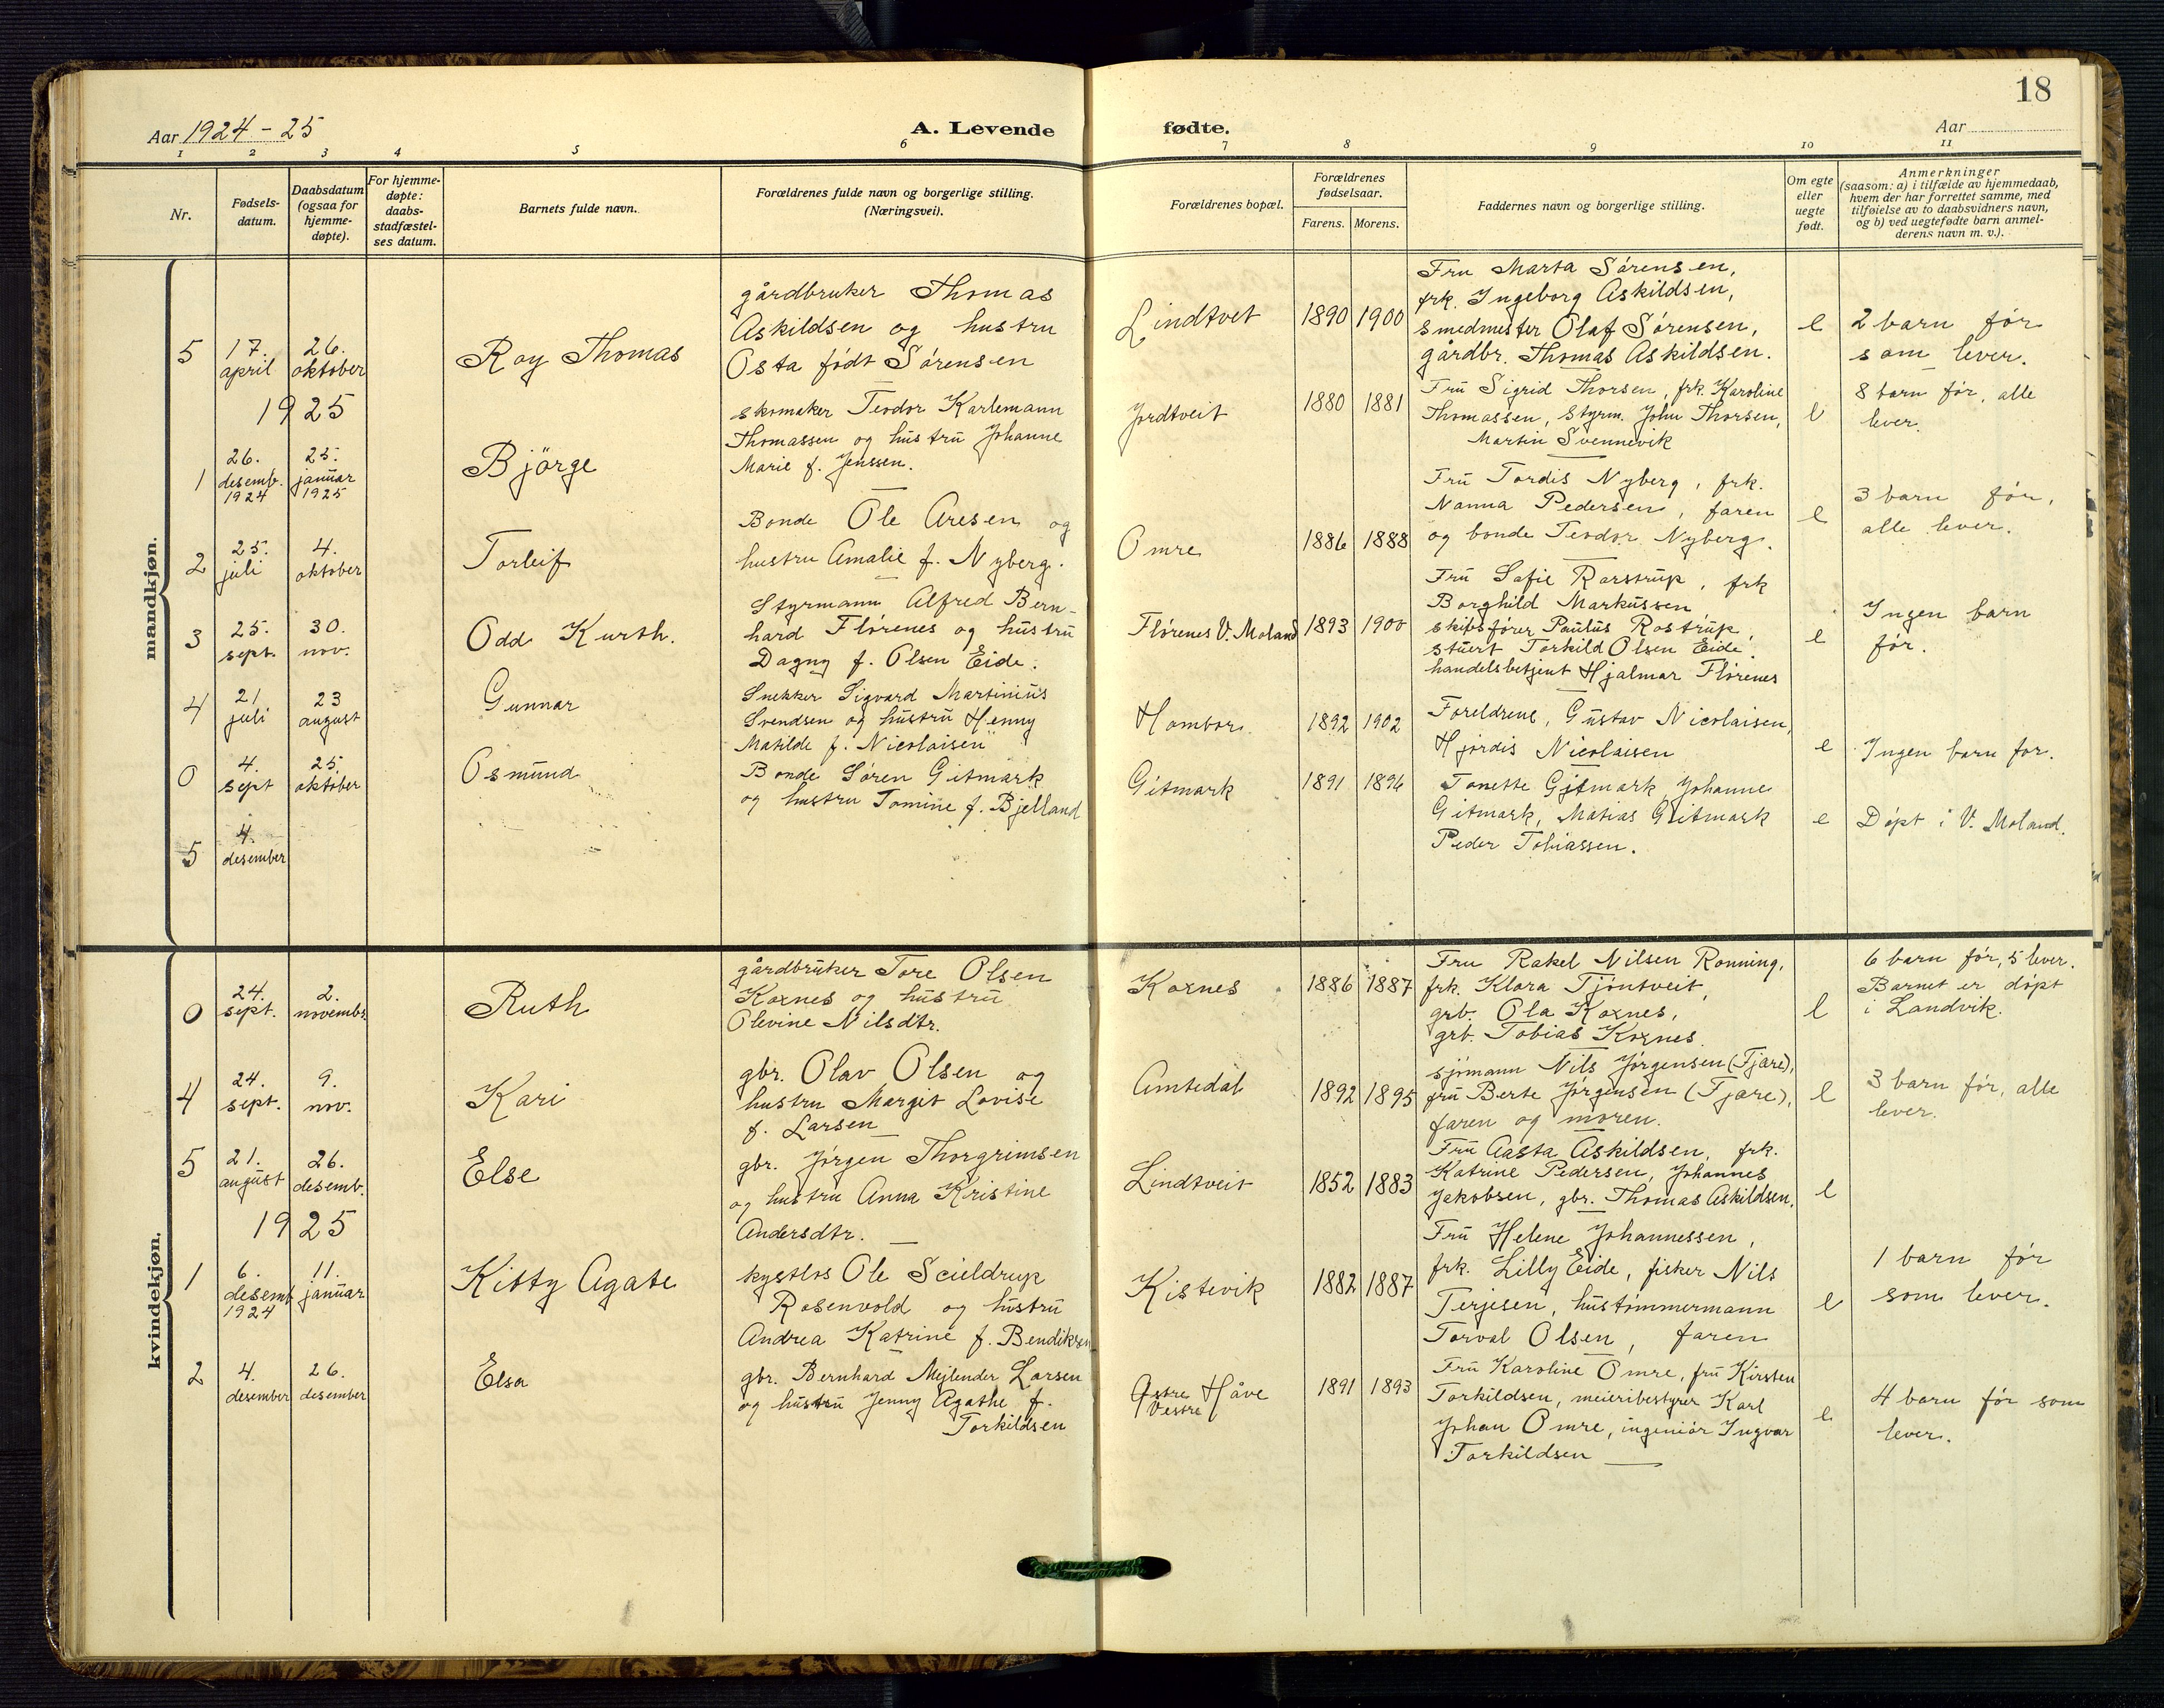 18
Aar 1924 - 25
A. Levende fødte.
Aar
1 2 3 4 5 6 7 8 9 10 11
Nr.
Fødsels-
datum.
Daabsdatum
(ogsaa for
hjemme-
døpte).
For hjemme-
døpte:
daabs-
stadfæstel-
ses datum.
Barnets fulde navn.
Forældrenes fulde navn og borgerlige stilling.
(Næringsvei).
Forældrenes bopæl.
Forældrenes
fødselsaar.
Farens. Morens.
Faddernes navn og borgerlige stilling.
Om egte
eller
uegte
født.
Anmerkninger
(saasom: a) i tilfælde av hjemmedaab,
hvem der har forrettet samme, med
tilføielse av to daabsvidners navn,
og b) ved uegtefødte barn anmel-
derens navn m. v.).
mandkjøn.
5
17.
april
26.
oktober
Roy Thomas
gårdbruker Thomas
Askildsen og hustru
Osta født Sørensen
Lindtvet
1890 1900
Fru Marta Sørensen,
frk. Ingeborg Askildsen,
smedmester Olaf Sørensen,
gårdbr. Thomas Askildsen.
e
2 barn før
som lever.
1925
1
26.
desemb.
1924
25.
januar
1925
Bjørge
skomaker Teodor Karlemann
Thomassen og hustru Johanne
Marie f. Jenssen.
Jordtveit
1880 1881
Fru Sigrid Thorsen, frk. Karoline
Thomassen, styrm. John Thorsen,
Martin Svennevik
e
8 barn før, alle
lever.
2
25.
juli
4.
oktober
Torleif
Bonde Ole Aresen og
hustru Amalie f. Nyberg.
Omre
1886 1888
Fru Tordis Nyberg, frk.
Nanna Pedersen, faren
og bonde Teodor Nyberg.
e
3 barn før,
alle lever.
3
25.
sept.
30.
nov.
Odd Kurth.
Styrmann Alfred Bern-
hard Flørenes og hustru
Dagny f. Olsen Eide.
Flørenes V. Moland
1893 1900
Fru Sofie Rostrup, frk
Borghild Markussen
skipsfører Paulus Rostrup,
stuert Torkild Olsen Eide.
handelsbetjent Hjalmar Flørenes
e
Ingen barn
før.
4
21.
juli
23
august
Gunnar
Snekker Sigvard Martinius
Svendsen og hustru Henny
Matilde f. Nicolaisen
Hombor.
1892 1902
Foreldrene, Gustav Nicolaisen,
Hjørdis Nicolaisen
e
Ingen barn før.
0
4.
sept
25.
oktober
Osmund
Bonde Søren Gitmark
og hustru Tomine f. Bjelland
Gitmark
1891 1896
Tonette Gitmark, Johanne
Gitmark, Matias Gitmark
Peder Tobiassen.
e
Døpt i V. Moland.
5
4.
desember
kvindekjøn.
0
24.
sept.
2.
novembr.
Ruth
gårdbruker Tore Olsen
Kornes og hustru
Olevine Nilsdtr.
Kornes
1886 1887
Fru Rakel Nilsen Rønning,
frk. Klara Tjøntveit,
grb. Ola Kornes,
grb. Tobias Kornes.
e
6 barn før, 5 lever.
Barnet er døpt
i Landvik.
4
24.
sept.
9.
nov.
Kari
gbr. Olav Olsen og
hustru Margit Lovise
f. Larsen
Amtedal
1892 1895
sjømann Nils Jørgensen (Fjære),
fru Berte Jørgensen (Fjære),
faren og moren.
e
3 barn før, alle
lever.
5
21.
august
26.
desemb.
Else
gbr. Jørgen Thorgrimsen
og hustru Anna Kristine
Andersdtr.
Lindtveit
1852 1883
Fru Aasta Askildsen, frk.
Katrine Pedersen, Johannes
Jakobsen, gbr. Thomas Askildsen.
e
1925
1
6.
desemb
1924
11.
januar
Kitty Agate
kystlos Ole Scieldrup
Rosenvold og hustru
Andrea Katrine f. Bendiksen
Kistevik
1882 1887
Fru Helene Johannessen,
frk. Lilly Eide, fisker Nils
Terjesen, hustømmermann
Torval Olsen, faren
e
1 barn før
som lever.
2
4.
desember
26.
desember
Elsa
gbr. Bernhard Mejlender Larsen
og hustru Jenny Agathe f.
Torkildsen
Østre Håve
Vestre
1891 1893
Fru Karoline Omre, fru Kirsten
Torkildsen, meieribestyrer Karl
Johan Omre, ingeniør Ingvar
Torkildsen
e
4 barn før som
lever.